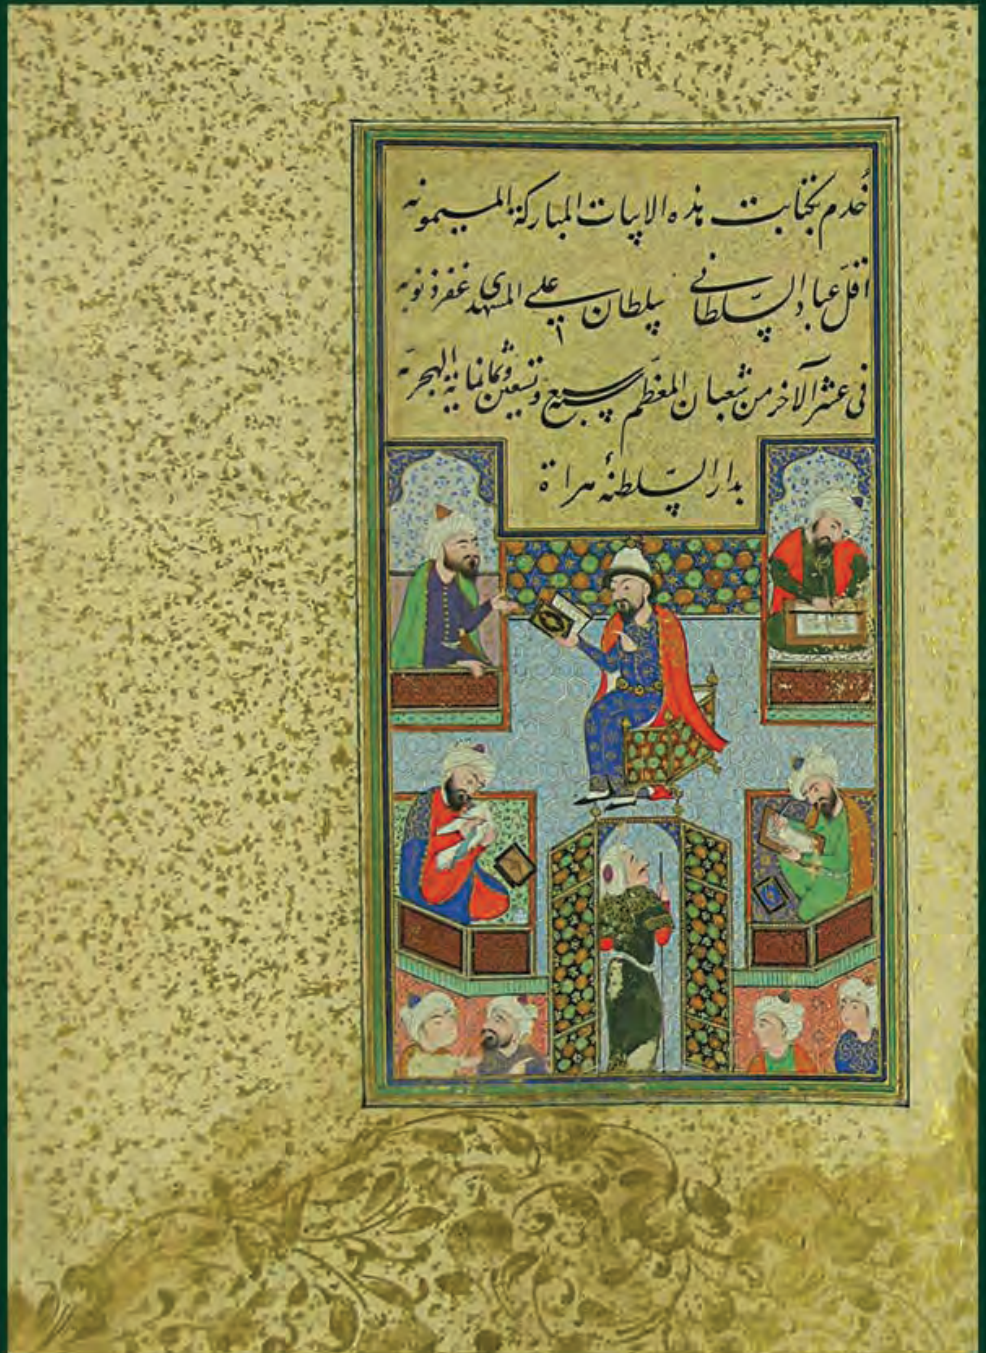 خُدم بکتابت هذه الابیات المبارکة المیمونه
اقلّ عباد السّلطانی سلطان علی المشهدی غفر ذنوبه
فی عشر الآخر من شعبان المعظّم سبع وتسعین وثمانمایة الهجریّة
بدار السّلطنهٔ هراة